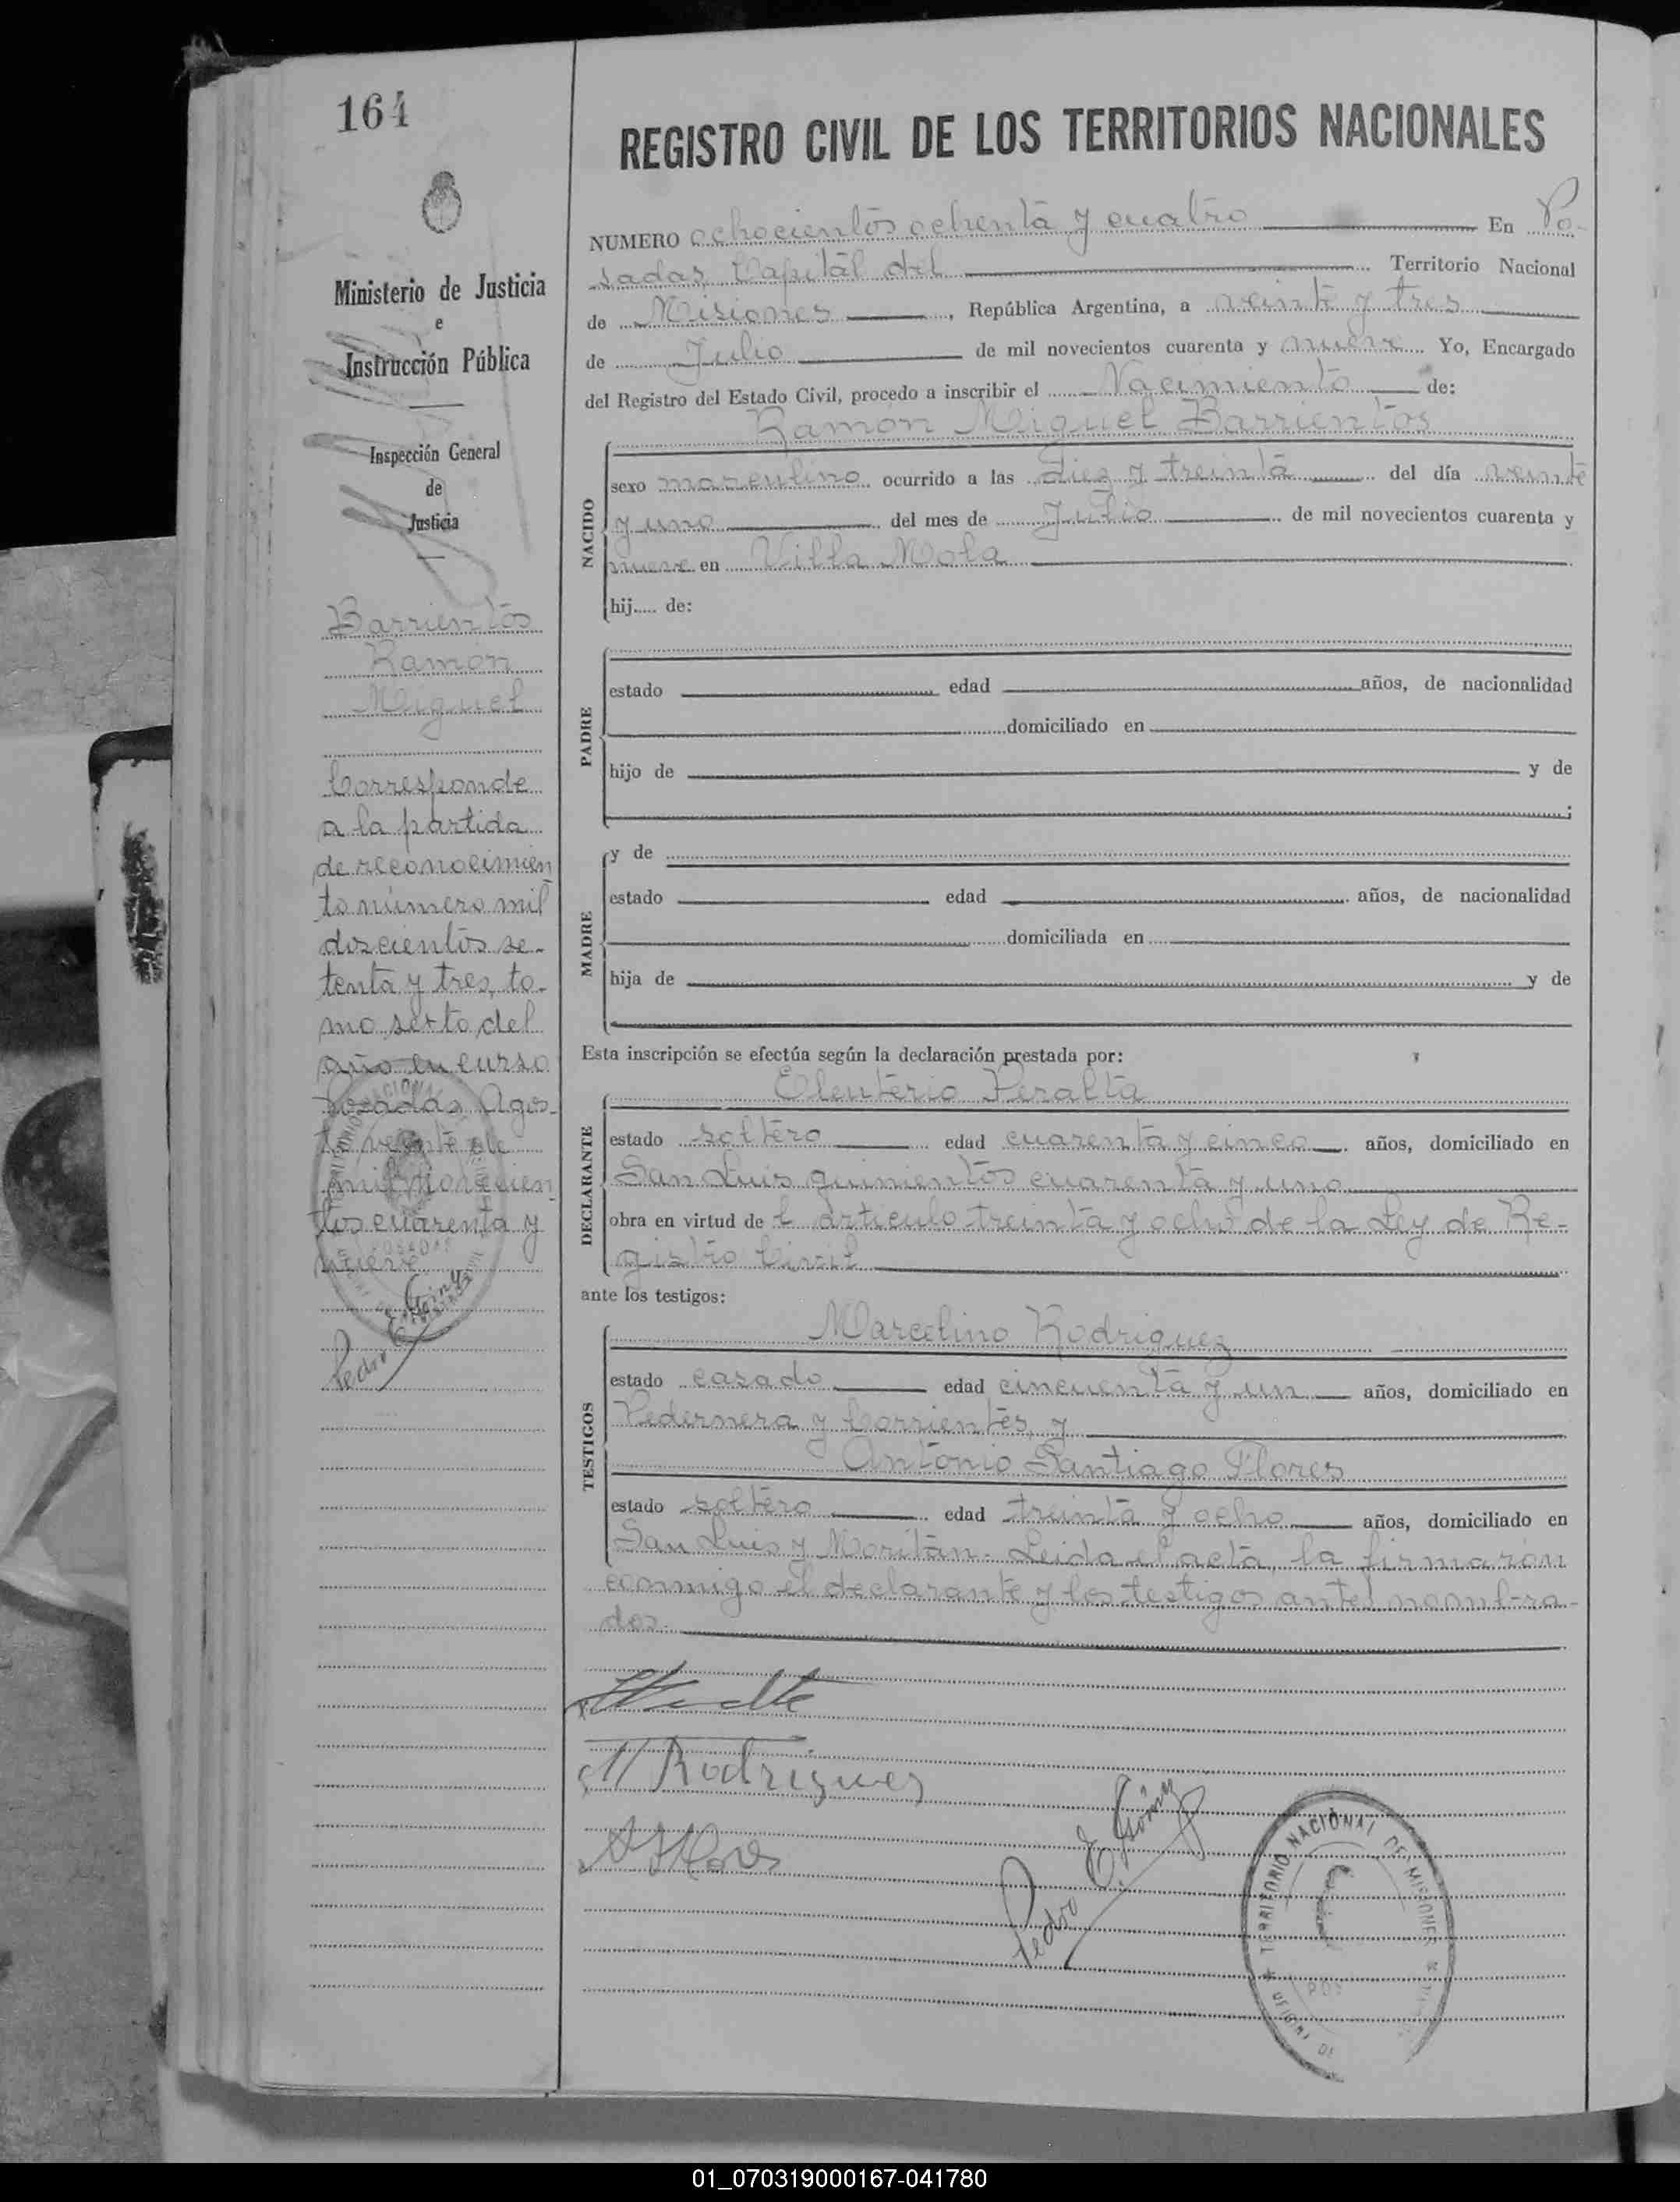 164
Ministerio de Justicia
e
Instrucción Pública
Inspección General
de
Justicia
Barrientos
Ramón
Miguel
Corresponde
a la partida
de reconocimien
to número mil
doscientos se-
tenta y tres, to-
mo sexto del
año en curso
Posadas Agos-
to veinte de
mil novecien
tos cuarenta y
nueve
Pedro E. Gómez
REGISTRO CIVIL DE LOS TERRITORIOS NACIONALES
NUMERO ochocientos ochenta y cuatro En Po-
sadas, Capital del Territorio Nacional
de Misiones, República Argentina, a veinte y tres
de Julio de mil novecientos cuarenta y nueve Yo, Encargado
del Registro del Estado Civil, procedo a inscribir el Nacimiento de:
Ramón Miguel Barrientos
NACIDO
sexo masculino ocurrido a las diez y treinta del día veinte
y uno del mes de Julio de mil novecientos cuarenta y
nueve en Villa Mola
hij..... de:
PADRE
estado edad años, de nacionalidad
domiciliado en
hijo de y de
;
MADRE
y de
estado edad años, de nacionalidad
domiciliada en
hija de y de
Esta inscripción se efectúa según la declaración prestada por:
Eleuterio Peralta
DECLARANTE
estado soltero edad cuarenta y cinco años, domiciliado en
San Luis quinientos cuarenta y uno
obra en virtud de l artículo treinta y ocho de la Ley de Re-
gistro Civil
ante los testigos:
Marcelino Rodriguez
TESTIGOS
estado casado edad cincuenta y un años, domiciliado en
Pedernera y Corrientes, y
Antonio Santiago Flores
estado soltero edad treinta y ocho años, domiciliado en
San Luis y Moritán - Leida el acta, la firmarón
conmigo el declarante y los testigos antes nombra-
dos.
M Rodriguez
A S Flores
Pedro E. Gómez
TERRITORIO NACIONAL DE MISIONES
POS
01_070319000167-041780